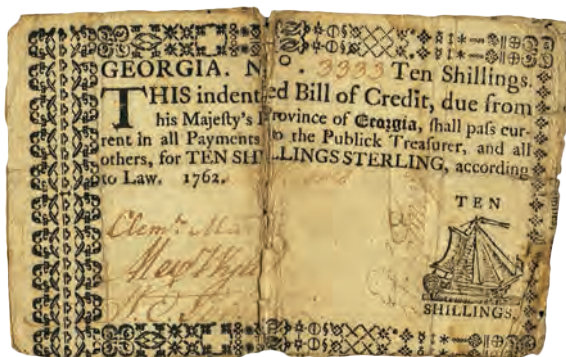 GEORGIA. N O. 3333 Ten Shillings.
THIS indented Bill of Credit, due from
his Majeſty's Province of Georgia, ſhall paſs cur-
rent in all Payments to the Publick Treaſurer, and all
others, for TEN SHILLINGS STERLING, according
to Law. 1762.
TEN
Clemt.
SHILLINGS.